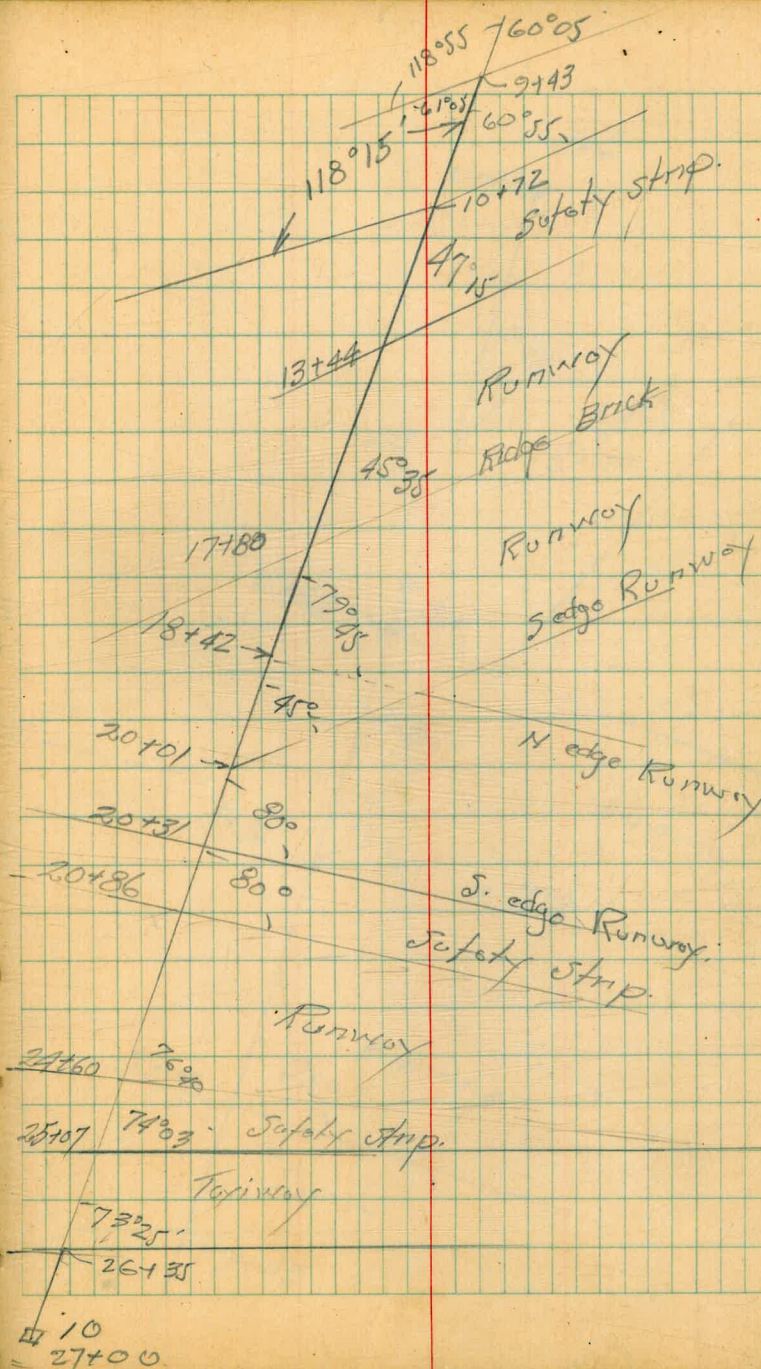 118°55 60°05
9+43
61°05
60°55
118°15'
10+72
Safety Strip.
47°15
13+44
Runway
Ridge Brick
45°35
Runway
17+80
79°45
S edge Runway
18+42
45°
20+01
N edge Runway
20+31
80°
20+86
80°
S. edge Runway.
Safety Strip.
Runway
24+60 76°40
25+07 74°03' Safety Strip.
Taxiway
73°25'
26+35
10
27+00